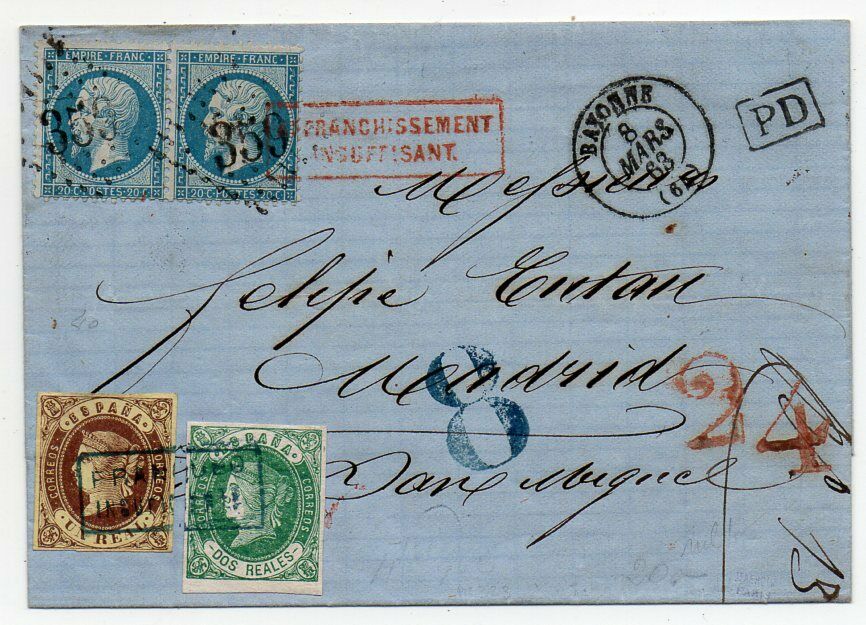 EMPIRE · FRANC ·
20 C · POSTES · 20 C
356
EMPIRE · FRANC ·
20 C · POSTES · 20 C
359
AFFRANCHISSEMENT
INSUFFISANT.
BAYONNE
8
MARS
63
(64)
PD
Messieurs
Felipe
Madrid
San Miguel
8
24
13
ESPAÑA
CORREOS
CORREOS
UN REAL
FRANQUEO
ESPAÑA
CORREOS
CORREOS
DOS REALES